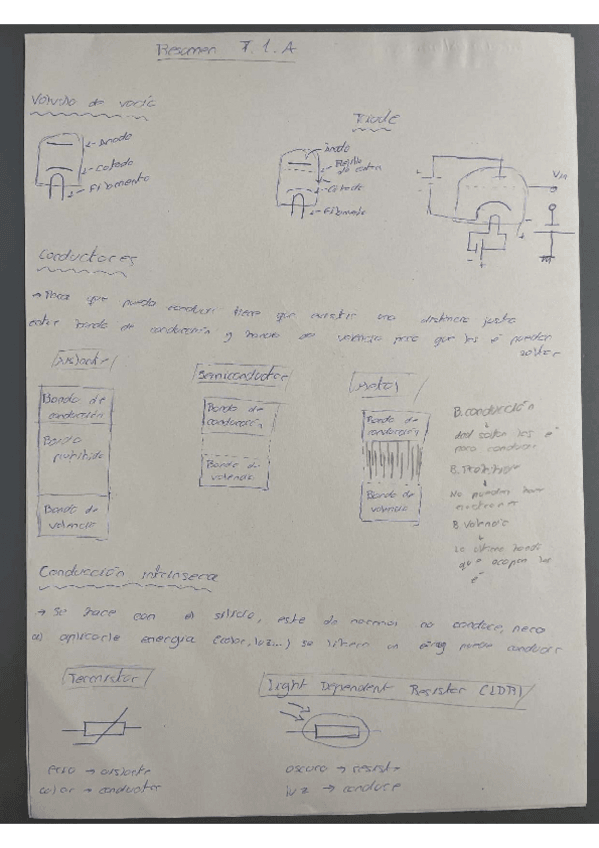 Resumen T.1.A
Válvula de vacío
Triode
Anodo
Catodo
Filamento
Anodo
Catodo
Filamento
Conductores
→ Para que pueda conducir tiene que existir una distancia justa
entre banda de conducción y banda de valencia para que los é puedan
saltar
Aislante
Semiconductor
Metal
Banda de
conducción
Banda
prohibida
Banda de
valencia
Banda de
conducción
Banda de
valencia
Banda de
conducción
Banda de
valencia
B. conducción
saltan los é
para conducir
B. Prohibida
No pueden haber
electrones
B. Valencia
La última banda
que ocupan los
é
Conducción intrínseca
→ Se hace con el silicio, este de normal no conduce, pero
al aplicarle energía (calor, luz...) se libera un é y puede conducir
Termistor
Light Dependent Resistor (LDR)
frío → aislante
calor → conductor
oscuro → resist
luz → conduce